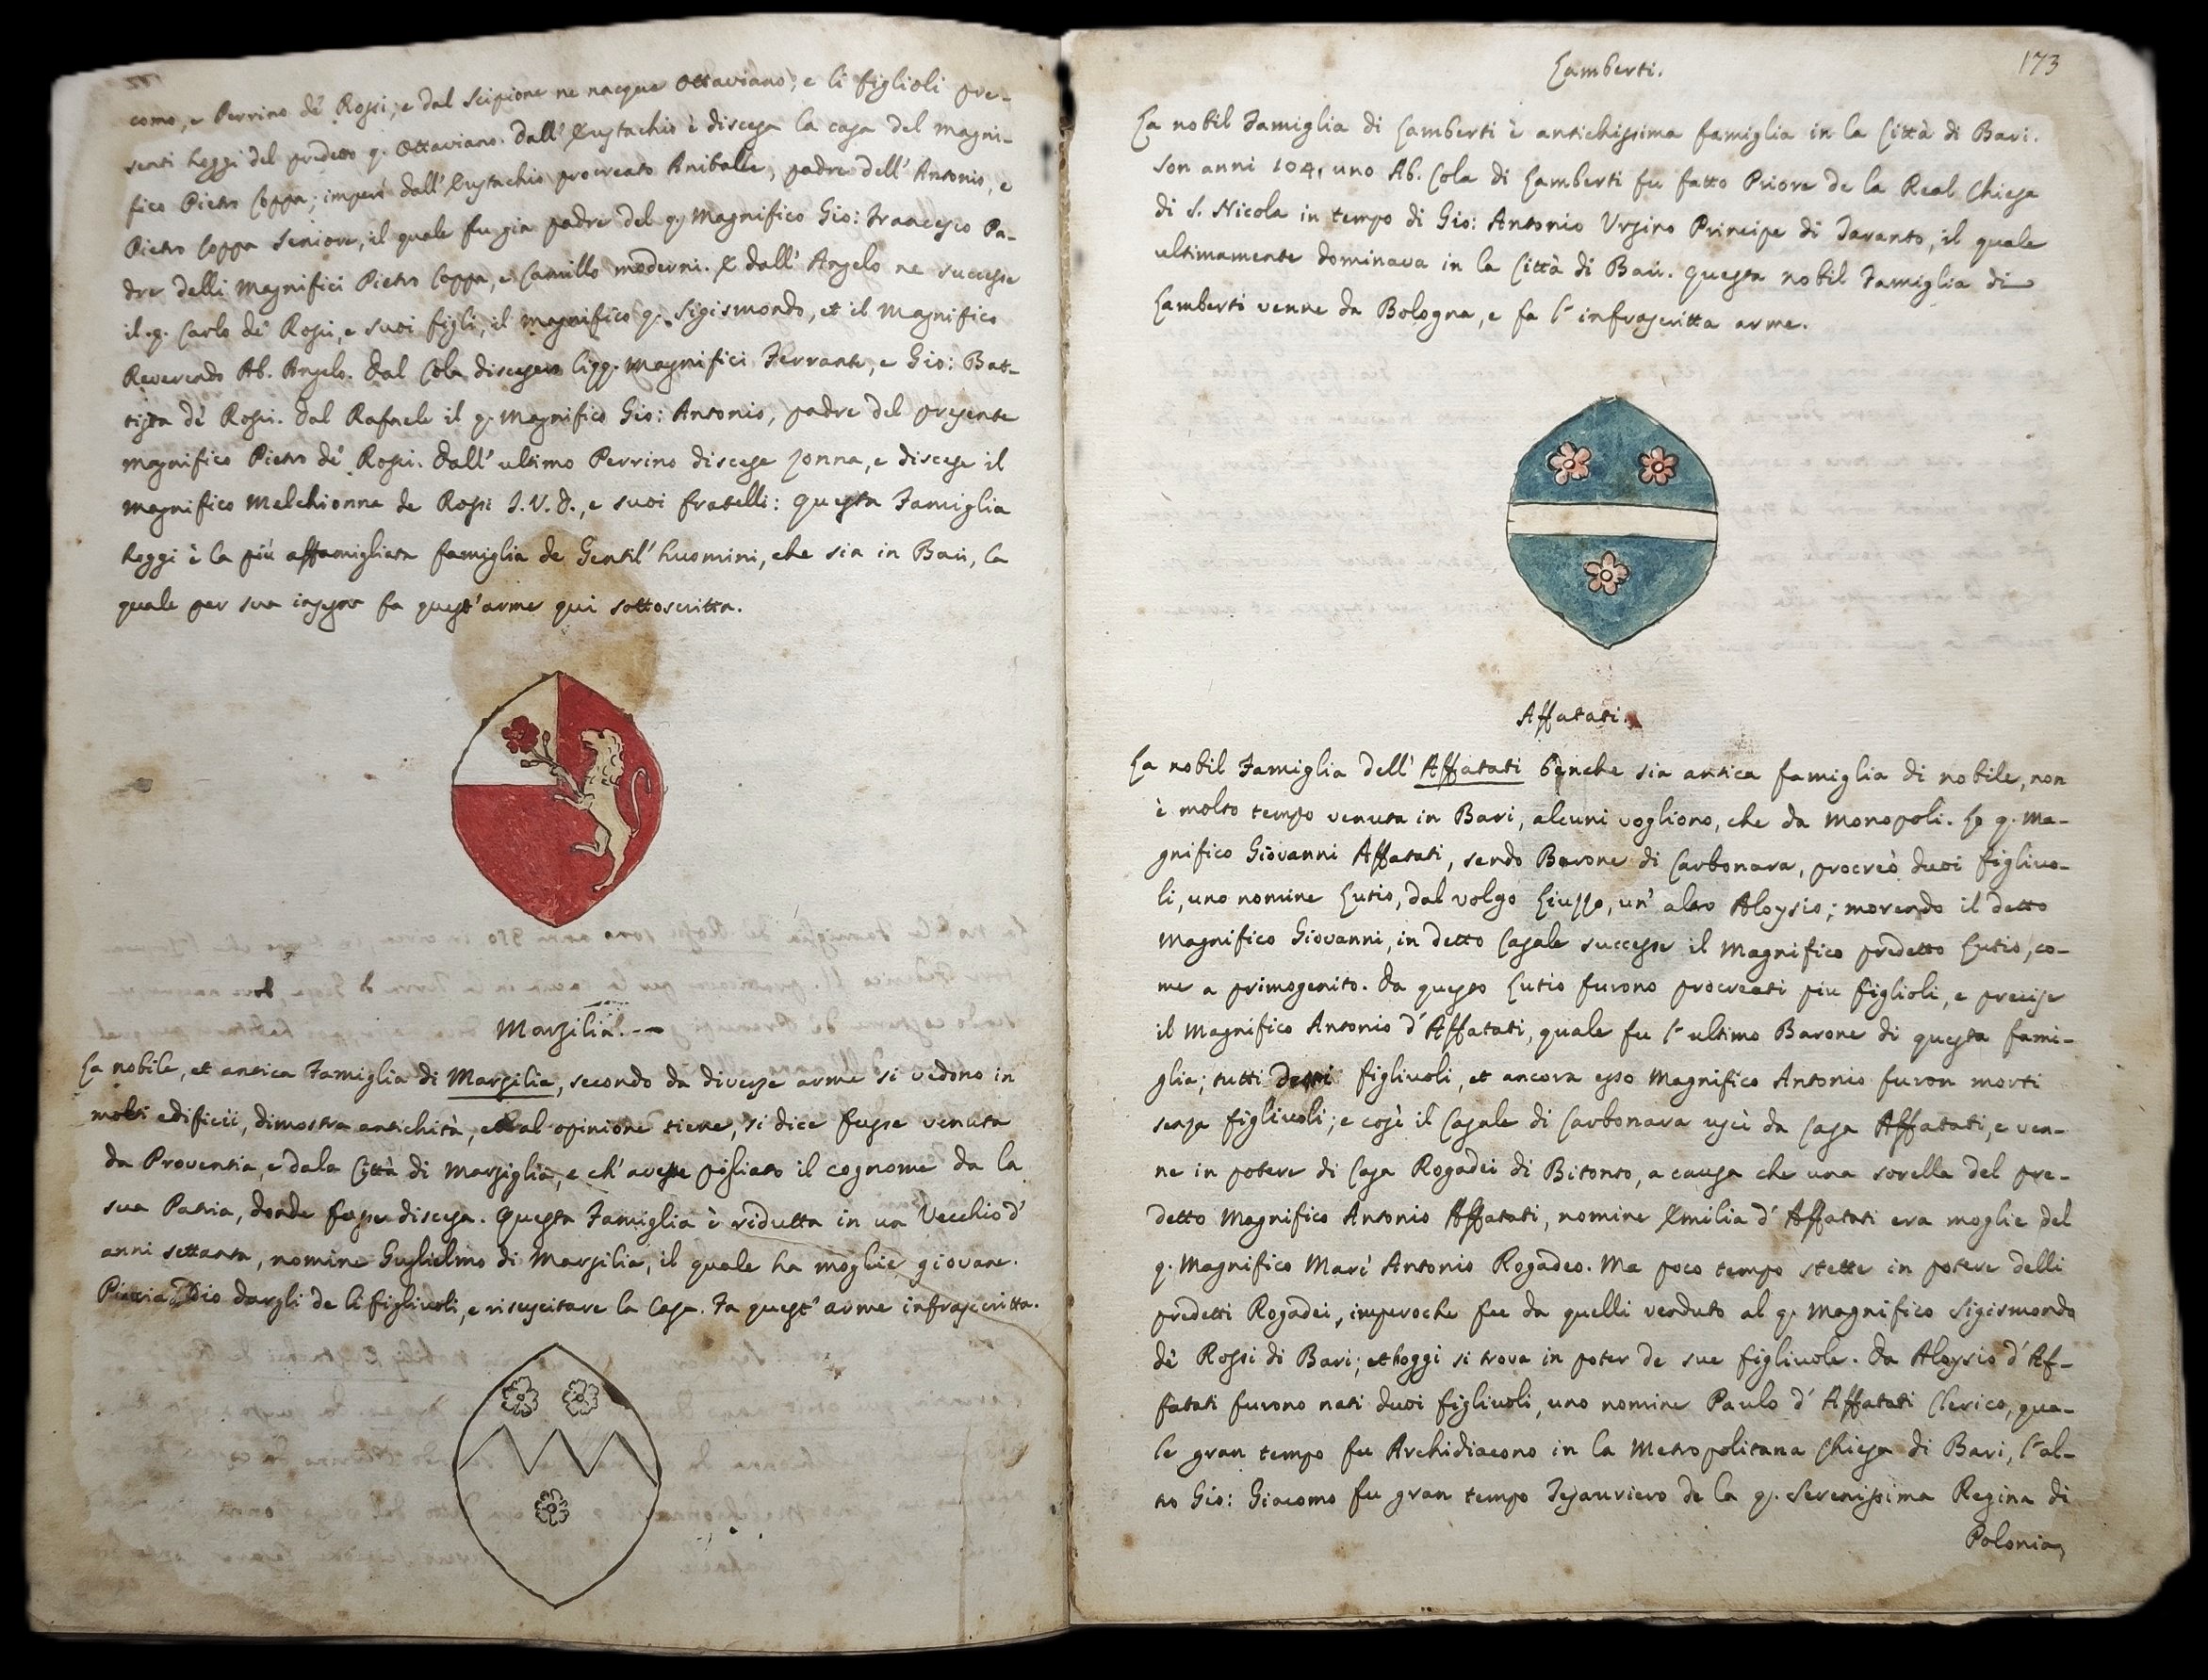 como, e Perrino dé Rossi; e dal Scipione ne nacque Ottaviano; e li figlioli pre-
senti hoggi del predetto q. Ottaviano. Dall' Eustachio è discesa la casa del magni-
fico Pietro Coppa; imperò dall' Eustachio procreato Aniballe, padre dell' Antonio, e
Pietro Coppa Seniore, il quale fu gia padre del q. Magnifico Gio: Francesco Pa-
dre delli Magnifici Pietro Coppa, e Camillo moderni. E dall' Angelo ne successe
il q. Carlo dé Rossi, e suoi figli, il magnifico q. Sigismondo, et il Magnifico
Reverendo Ab. Angelo. Dal Cola discesero li qq. Magnifici Ferrante, e Gio: Bat-
tista dé Rossi. Dal Rafaele il q. Magnifico Gio: Antonio, padre del presente
magnifico Pietro dé Rossi. Dall' ultimo Perrino discese Jonna, e discese il
magnifico Melchionne de Rossi I.V.D., e suoi fratelli: questa Famiglia
hoggi è la più affamigliata famiglia de Gentil' huomini, che sia in Bari, la
quale per sua insegna fa quest' arme qui sottoscritta.
Marsilia.
La nobile, et antica Famiglia di Marsilia, secondo da diverse arme si vedono in
molti edificii, dimostra antichità, e al opinione tiene, si dice fusse venuta
da Proventia, e dala Città di Marsiglia, e ch' avesse pigliato il cognome da la
sua Patria, donde fusse discesa. Questa Famiglia è ridutta in un Vecchio d'
anni settanta, nomine Guglielmo di Marsilia, il quale ha moglie giovane.
Piaccia Dio dargli de li figliuoli, e risuscitare la Casa. Fa quest' arme infrascritta.
173
Lamberti.
La nobil Famiglia di Lamberti è antichissima famiglia in la Città di Bari.
Son anni 104, uno Ab. Cola di Lamberti fu fatto Priore de la Real Chiesa
di S. Nicola in tempo di Gio: Antonio Ursino Principe di Taranto, il quale
ultimamente dominava in la Città di Bari. Questa nobil Famiglia di
Lamberti venne da Bologna, e fa l' infrascritta arme.
Affatati.
La nobil Famiglia dell' Affatati benche sia antica famiglia di nobile, non
è molto tempo venuta in Bari, alcuni vogliono, che da Monopoli. Lo q. Ma-
gnifico Giovanni Affatati, sendo Barone di Carbonara, procreò duoi figliuo-
li, uno nomine Lutio, dal volgo Liuzzo, un' altro Aloysio; morendo il detto
Magnifico Giovanni, in detto Casale successe il Magnifico predetto Lutio, co-
me a primogenito. Da questo Lutio furono procreati piu figlioli, e precise
il Magnifico Antonio d' Affatati, quale fu l' ultimo Barone di questa fami-
glia; tutti detti figliuoli, et ancora esso Magnifico Antonio furon morti
senza figliuoli; e così il Casale di Carbonara uscì da Casa Affatati, e ven-
ne in potere di Casa Rogadei di Bitonto, a causa che una sorella del pre-
detto Magnifico Antonio Affatati, nomine Emilia d' Affatati era moglie del
q. Magnifico Marc' Antonio Rogadeo. Ma poco tempo stette in potere delli
predetti Rogadei, imperoche fue da quelli venduto al q. Magnifico Sigismondo
dé Rossi di Bari; et hoggi si trova in poter de sue figliuole. Da Aloysio d' Af-
fatati furono nati duoi figliuoli, uno nomine Paulo d' Affatati Clerico, qua-
le gran tempo fu Archidiacono in la Metropolitana Chiesa di Bari, l' al-
tro Gio: Giacomo fu gran tempo Tesauriero de la q. Serenissima Regina di
Polonia,